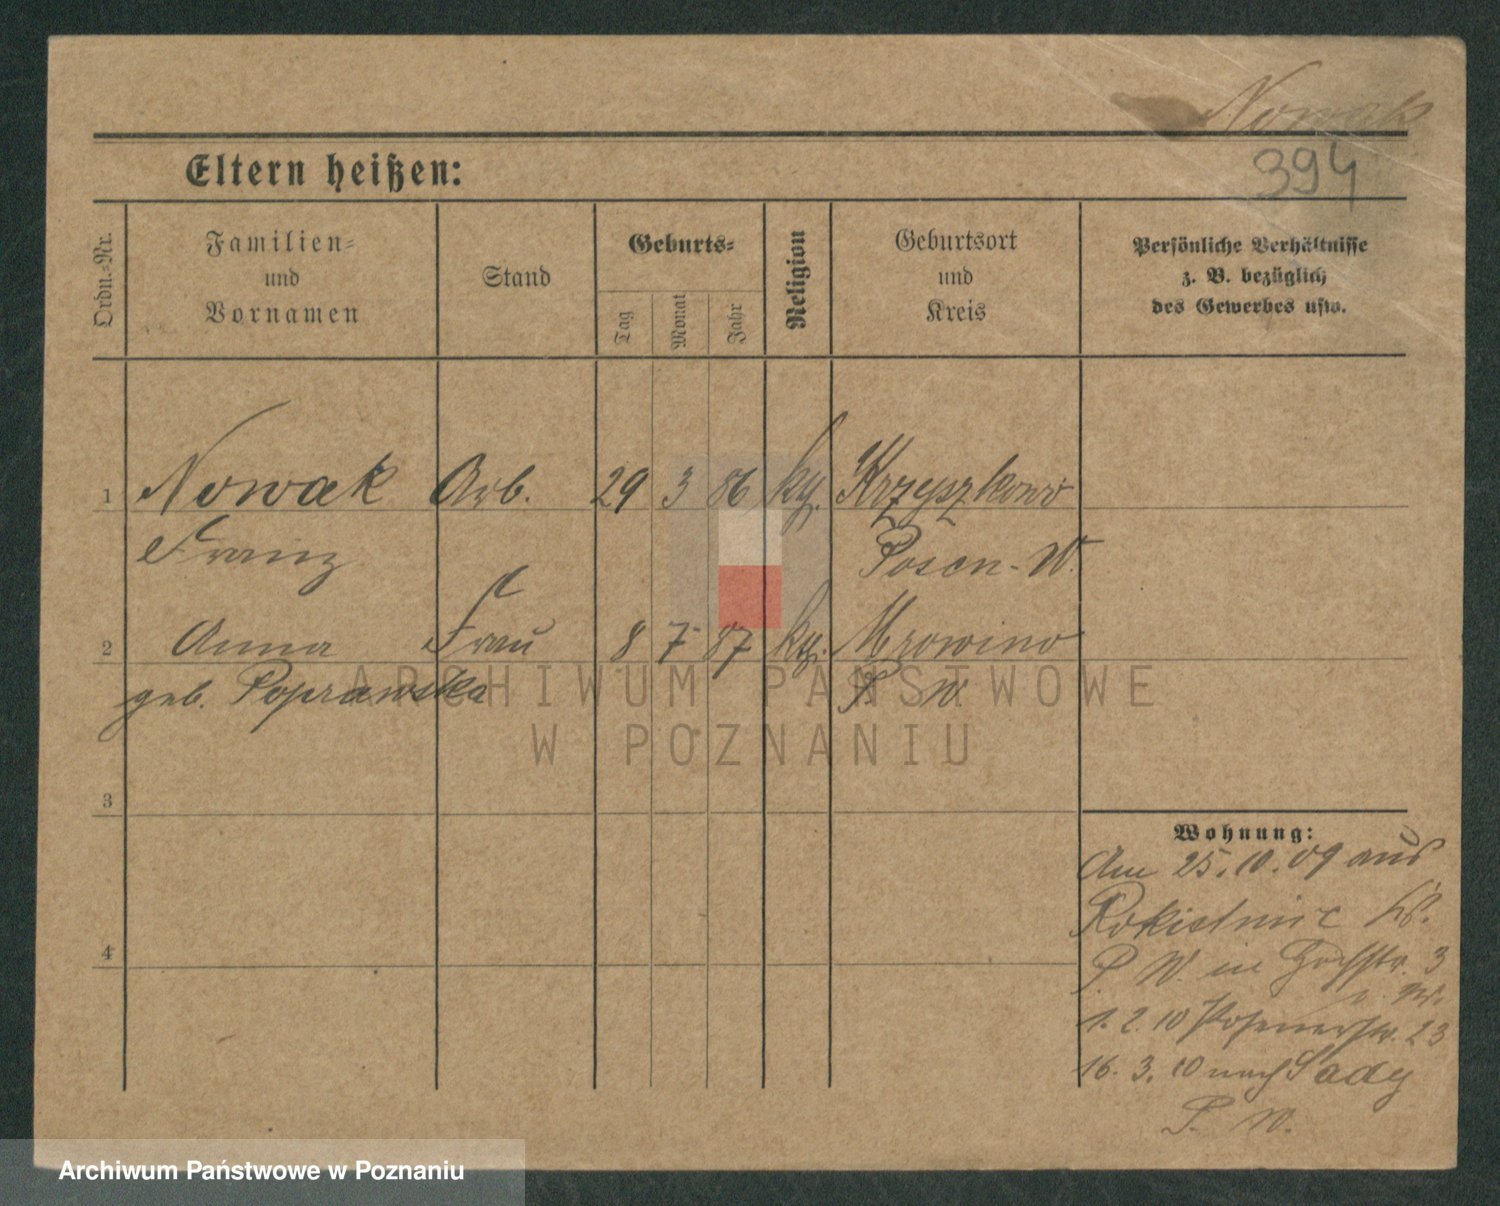 Nowak
394
Eltern heißen:
Ordn.-Nr.
Familien-
und
Vornamen
Stand
Geburts-
Tag
Monat
Jahr
Religion
Geburtsort
und
Kreis
Persönliche Verhältnisse
z. B. bezüglich
des Gewerbes usw.
1 Nowak Arb. 29 3 86 kth. Krzyszkowo
Franz Posen-W.
2 Anna Frau 8 7 87 kth. Mrowino
geb. Poprawska P. W.
3
4
Wohnung:
Am 25.10.09 aus
Rokietnice
P. W. in Hochstr. 3
1.2.10 Posenerstr. 23
16.3.10 nach Sady
P. W.
ARCHIWUM PAŃSTWOWE
W POZNANIU
Archiwum Państwowe w Poznaniu